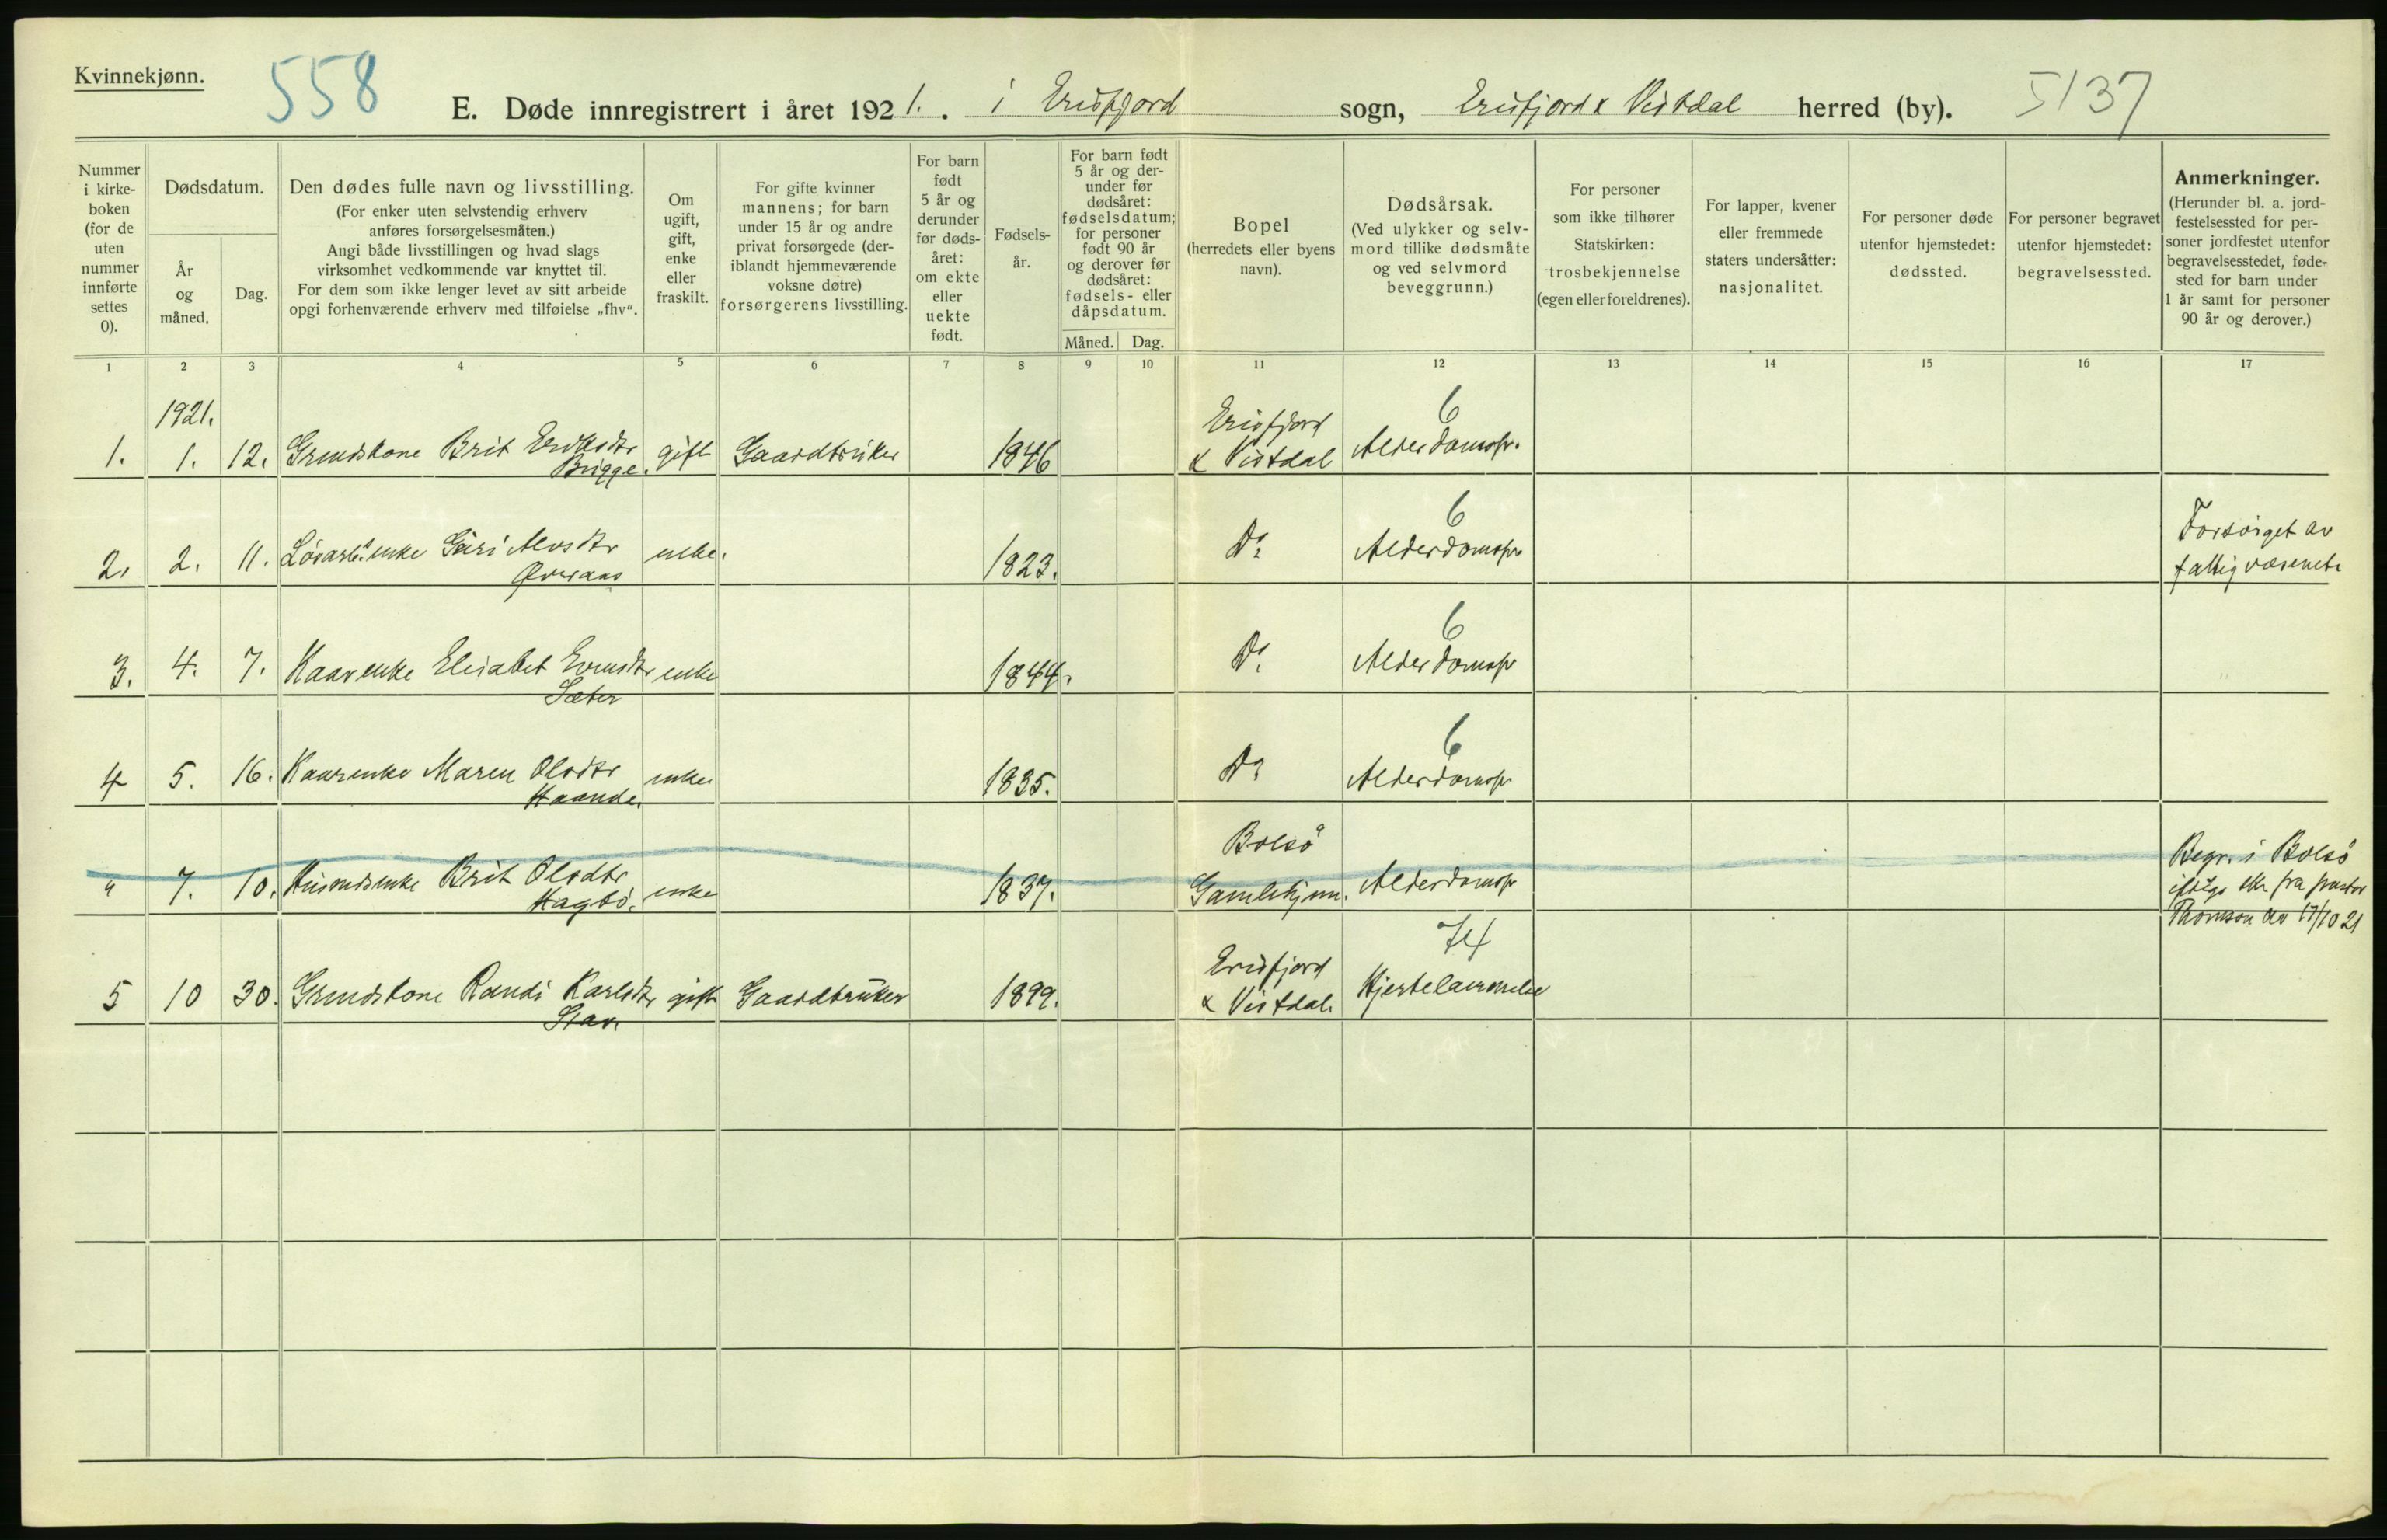 Kvinnekjønn.
558
E. Døde innregistrert i året 1921. i Erisfjord sogn, Erisfjord & Vistdal herred (by).
5137
Nummer i kirke- boken (for de uten nummer innførte settes 0).
Dødsdatum.
År og måned.
Dag.
Den dødes fulle navn og livsstilling.
(For enker uten selvstendig erhverv
anføres forsørgelsesmåten.)
Angi både livsstillingen og hvad slags
virksomhet vedkommende var knyttet til.
For dem som ikke lenger levet av sitt arbeide
opgi forhenværende erhverv med tilføielse „fhv“.
Om ugift, gift, enke eller fraskilt.
For gifte kvinner
mannens; for barn
under 15 år og andre
privat forsørgede (der-
iblandt hjemmeværende
voksne døtre)
forsørgerens livsstilling.
For barn født 5 år og derunder før døds- året: om ekte eller uekte født.
Fødsels- år.
For barn født
5 år og der-
under før
dødsåret:
fødselsdatum;
for personer
født 90 år
og derover før
dødsåret:
fødsels- eller
dåpsdatum.
Måned. Dag.
Bopel
(herredets eller byens
navn).
Dødsårsak.
(Ved ulykker og selv-
mord tillike dødsmåte
og ved selvmord
beveggrunn.)
For personer
som ikke tilhører
Statskirken:
trosbekjennelse
(egen eller foreldrenes).
For lapper, kvener
eller fremmede
staters undersåtter:
nasjonalitet.
For personer døde
utenfor hjemstedet:
dødssted.
For personer begravet
utenfor hjemstedet:
begravelsessted.
Anmerkninger.
(Herunder bl. a. jord-
festelsessted for per-
soner jordfestet utenfor
begravelsesstedet, føde-
sted for barn under
1 år samt for personer
90 år og derover.)
1 2 3 4 5 6 7 8 9 10 11 12 13 14 15 16 17
1921.
1. 1. 12. Grmdskone Brit Eriksdtr Brigge. gift Gaardbruker 1846 Erisfjord & Vistdal 6 Alderdomssv.
2. 2. 11. enke Guri Øveraas enke. 1823. Do 6 Alderdomssv Forsørget av fattigvæsenet.
3. 4. 7. Kaarenke Elisabet Evensdtr Sæter enke 1844. Do 6 Alderdomssv
4 5. 16. Kaarenke Maren Olsdtr Haande. enke 1835. Do 6 Alderdomssv
" 7. 10. Husmdsenke Brit Olsdtr Hagbø. enke 1837. Bolsø Gamlehjem. Alderdomssv Begr. i Bolsø ifølge skr fra pastor Thomson av 17/10 21
5 10 30. Grmdskone Randi Karlsdtr Stav. gift Gaardbruker 1899. Erisfjord & Vistdal. 74 Hjertelammelse